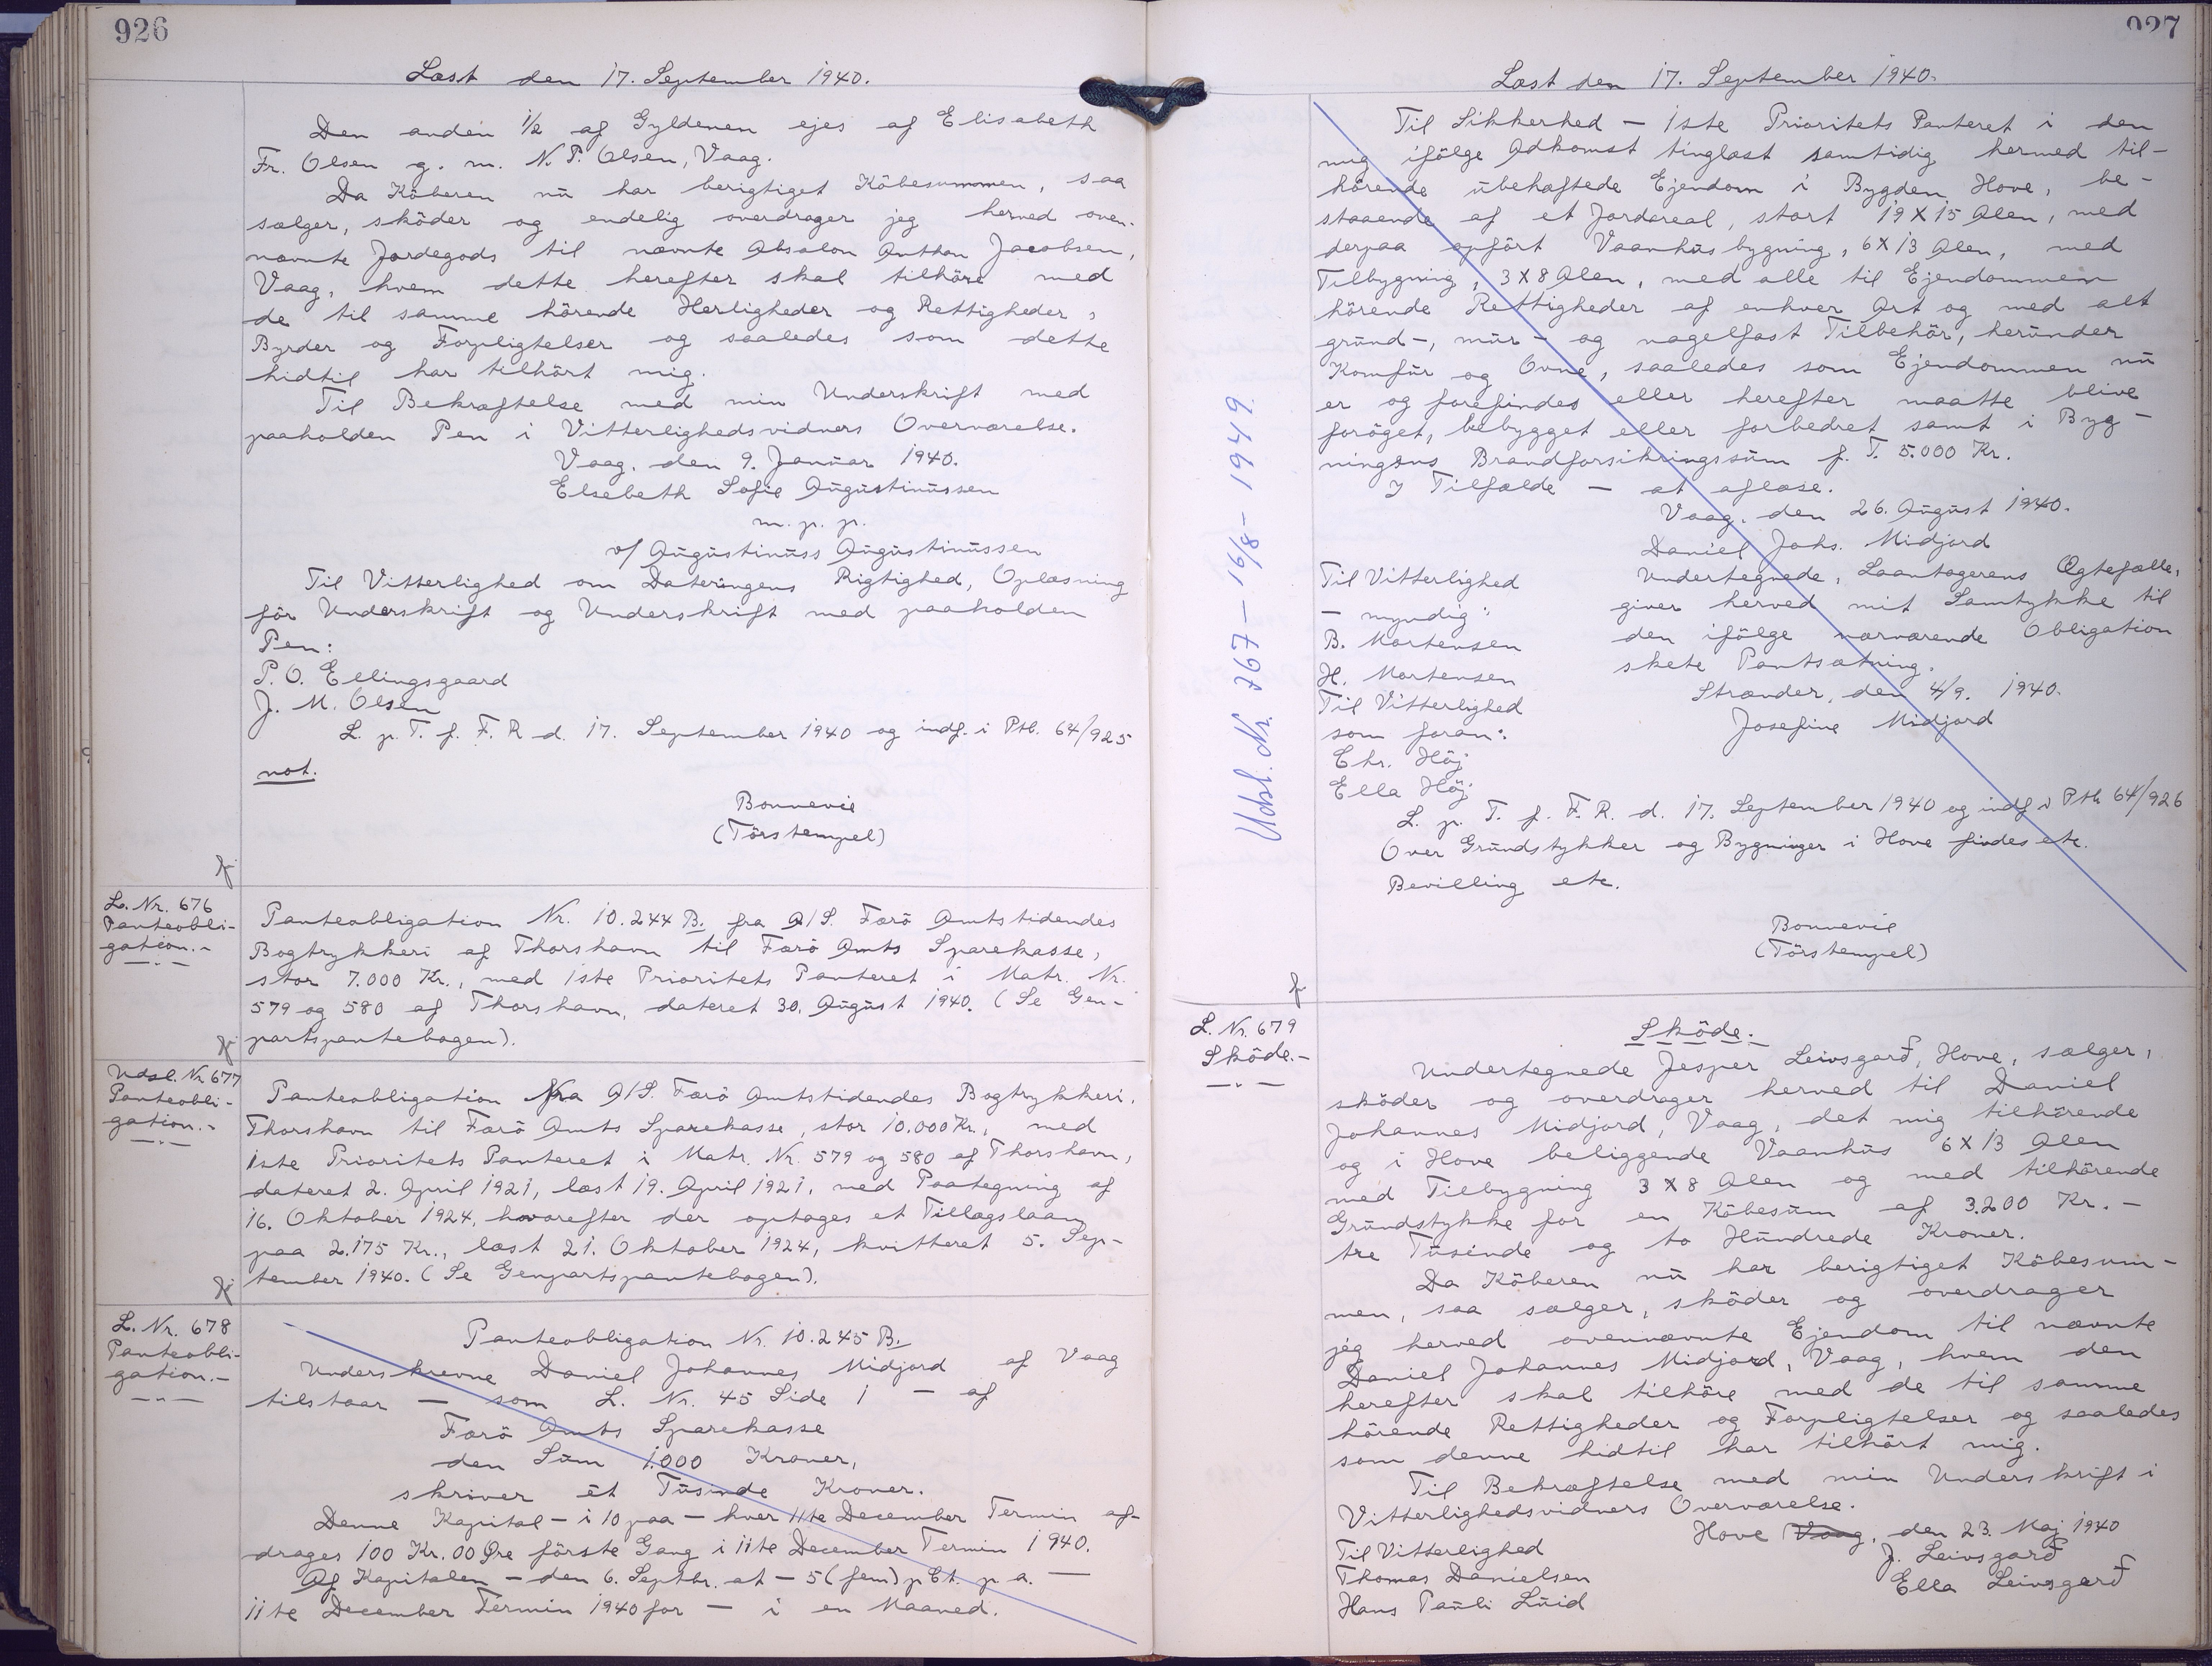 926
Læst den 17. September 1940.
Den anden 1/2 af Gyldenen ejes af Elisabeth
Fr. Olsen g. m. N. P. Olsen, Vaag.
Da Köberen nu har berigtiget Köbesummen, saa
sælger, sköder og endelig overdrager jeg herved oven-
nævnte Jordegods til nævnte Absalon Anthon Jacobsen,
Vaag, hvem dette herefter skal tilhöre med
de til samme hörende Herligheder og Rettigheder,
Byrder og Forpligtelser og saaledes som dette
hidtil har tilhört mig.
Til Bekræftelse med min Underskrift med
paaholden Pen i Vitterlighedsvidners Overværelse.
Vaag, den 9. Januar 1940.
Elsebeth Sofie Augustinussen
m. p. p.
v/ Augustinuss Augustinussen
Til Vitterlighed om Dateringens Rigtighed, Oplæsning
för Underskrift og Underskrift med paaholden
Pen:
P. O. Ellingsgaard
J. M. Olsen
L. p. T. f. F. R. d. 17. September 1940 og indf. i Ptb. 64/925
not.
Bonnevie
(Törstempel)
L. Nr. 676
Panteobli-
gation.-
Panteobligation Nr. 10.244 B. fra A/S. Færö Amtstidendes
Bogtrykkeri af Thorshavn til Færö Amts Sparekasse,
stor 7.000 Kr., med 1ste Prioritets Panteret i Matr. Nr.
579 og 580 af Thorshavn, dateret 30. August 1940. (Se Gen-
partspantebogen).
Udsl. Nr. 677
Panteobli-
gation.-
Panteobligation fra A/S. Færö Amtstidendes Bogtrykkeri,
Thorshavn til Færö Amts Sparekasse, stor 10.000 Kr., med
1ste Prioritets Panteret i Matr. Nr. 579 og 580 af Thorshavn,
dateret 2. April 1921, læst 19. April 1921, med Paategning af
16. Oktober 1924, hvorefter der optages et Tillægslaan
paa 2.175 Kr., læst 21. Oktober 1924, kvitteret 5. Sep-
tember 1940. (Se Genpartspantebogen).
L. Nr. 678
Panteobli-
gation.-
Panteobligation Nr. 10.245 B.
Underskrevne Daniel Johannes Midjord af Vaag
tilstaar — som L. Nr. 45 Side 1 — af
Færö Amts Sparekasse
den Sum 1.000 Kroner,
skriver ét Tusinde Kroner.
Denne Kapital — i 10 paa — hver 11te December Termin af-
drages 100 Kr. 00 Öre förste Gang i 11te December Termin 1940.
Af Kapitalen — den 6. Septbr. at — 5 (fem) pCt. p. a. —
11te December Termin 1940 for — i en Maaned.
927
Læst den 17. September 1940.
Til Sikkerhed — 1ste Prioritets Panteret i den
mig ifölge Adkomst tinglæst samtidig hermed til-
hörende ubehæftede Ejendom i Bygden Hove, be-
staaende af et Jordareal, stort 19 X 15 Alen, med
derpaa opfört Vaanhusbygning, 6 X 13 Alen, med
Tilbygning, 3 X 8 Alen, med alle til Ejendommen
hörende Rettigheder af enhver Art og med alt
grund-, mur- og nagelfast Tilbehör, herunder
Komfur og Ovne, saaledes som Ejendommen nu
er og forefindes eller herefter maatte blive
foröget, bebygget eller forbedret samt i Byg-
ningens Brandforsikringssum f. T. 5.000 Kr.
I Tilfælde — at aflæse.
Vaag, den 26. August 1940.
Daniel Johs. Midjord
Til Vitterlighed
— myndig:
B. Mortensen
H. Mortensen
Til Vitterlighed
som foran:
Chr. Höj
Ella Höj
Undertegnede, Laantagerens Ægtefælle,
giver herved mit Samtykke til
den ifölge nærværende Obligation
skete Pantsætning.
Strænder, den 4/9. 1940.
Josefine Midjord
L. p. T. f. F. R. d. 17. September 1940 og indf. i Ptb. 64/926
Over Grundstykker og Bygninger i Hove findes etc.
Bevilling etc.
Bonnevie
(Törstempel)
Udsl. Nr. 767 — 16/8 - 1949.
L. Nr. 679
Sköde.-
Sköde.-
Undertegnede Jesper Leivsgarð, Hove, sælger,
sköder og overdrager herved til Daniel
Johannes Midjord, Vaag, det mig tilhörende
og i Hove beliggende Vaanhus 6 X 13 Alen
med Tilbygning 3 X 8 Alen og med tilhörende
Grundstykke for en Köbesum af 3.200 Kr. -
tre Tusinde og to Hundrede Kroner.
Da Köberen nu har berigtiget Köbesum-
men, saa sælger, sköder og overdrager
jeg herved ovennævnte Ejendom til nævnte
Daniel Johannes Midjord, Vaag, hvem den
herefter skal tilhöre med de til samme
hörende Rettigheder og Forpligtelser og saaledes
som denne hidtil har tilhört mig.
Til Bekræftelse med min Underskrift i
Vitterlighedsvidners Overværelse.
Hove Vaag, den 23. Maj 1940
Til Vitterlighed
Thomas Danielsen
Hans Pauli Luid
J. Leivsgarð
Ella Leivsgarð